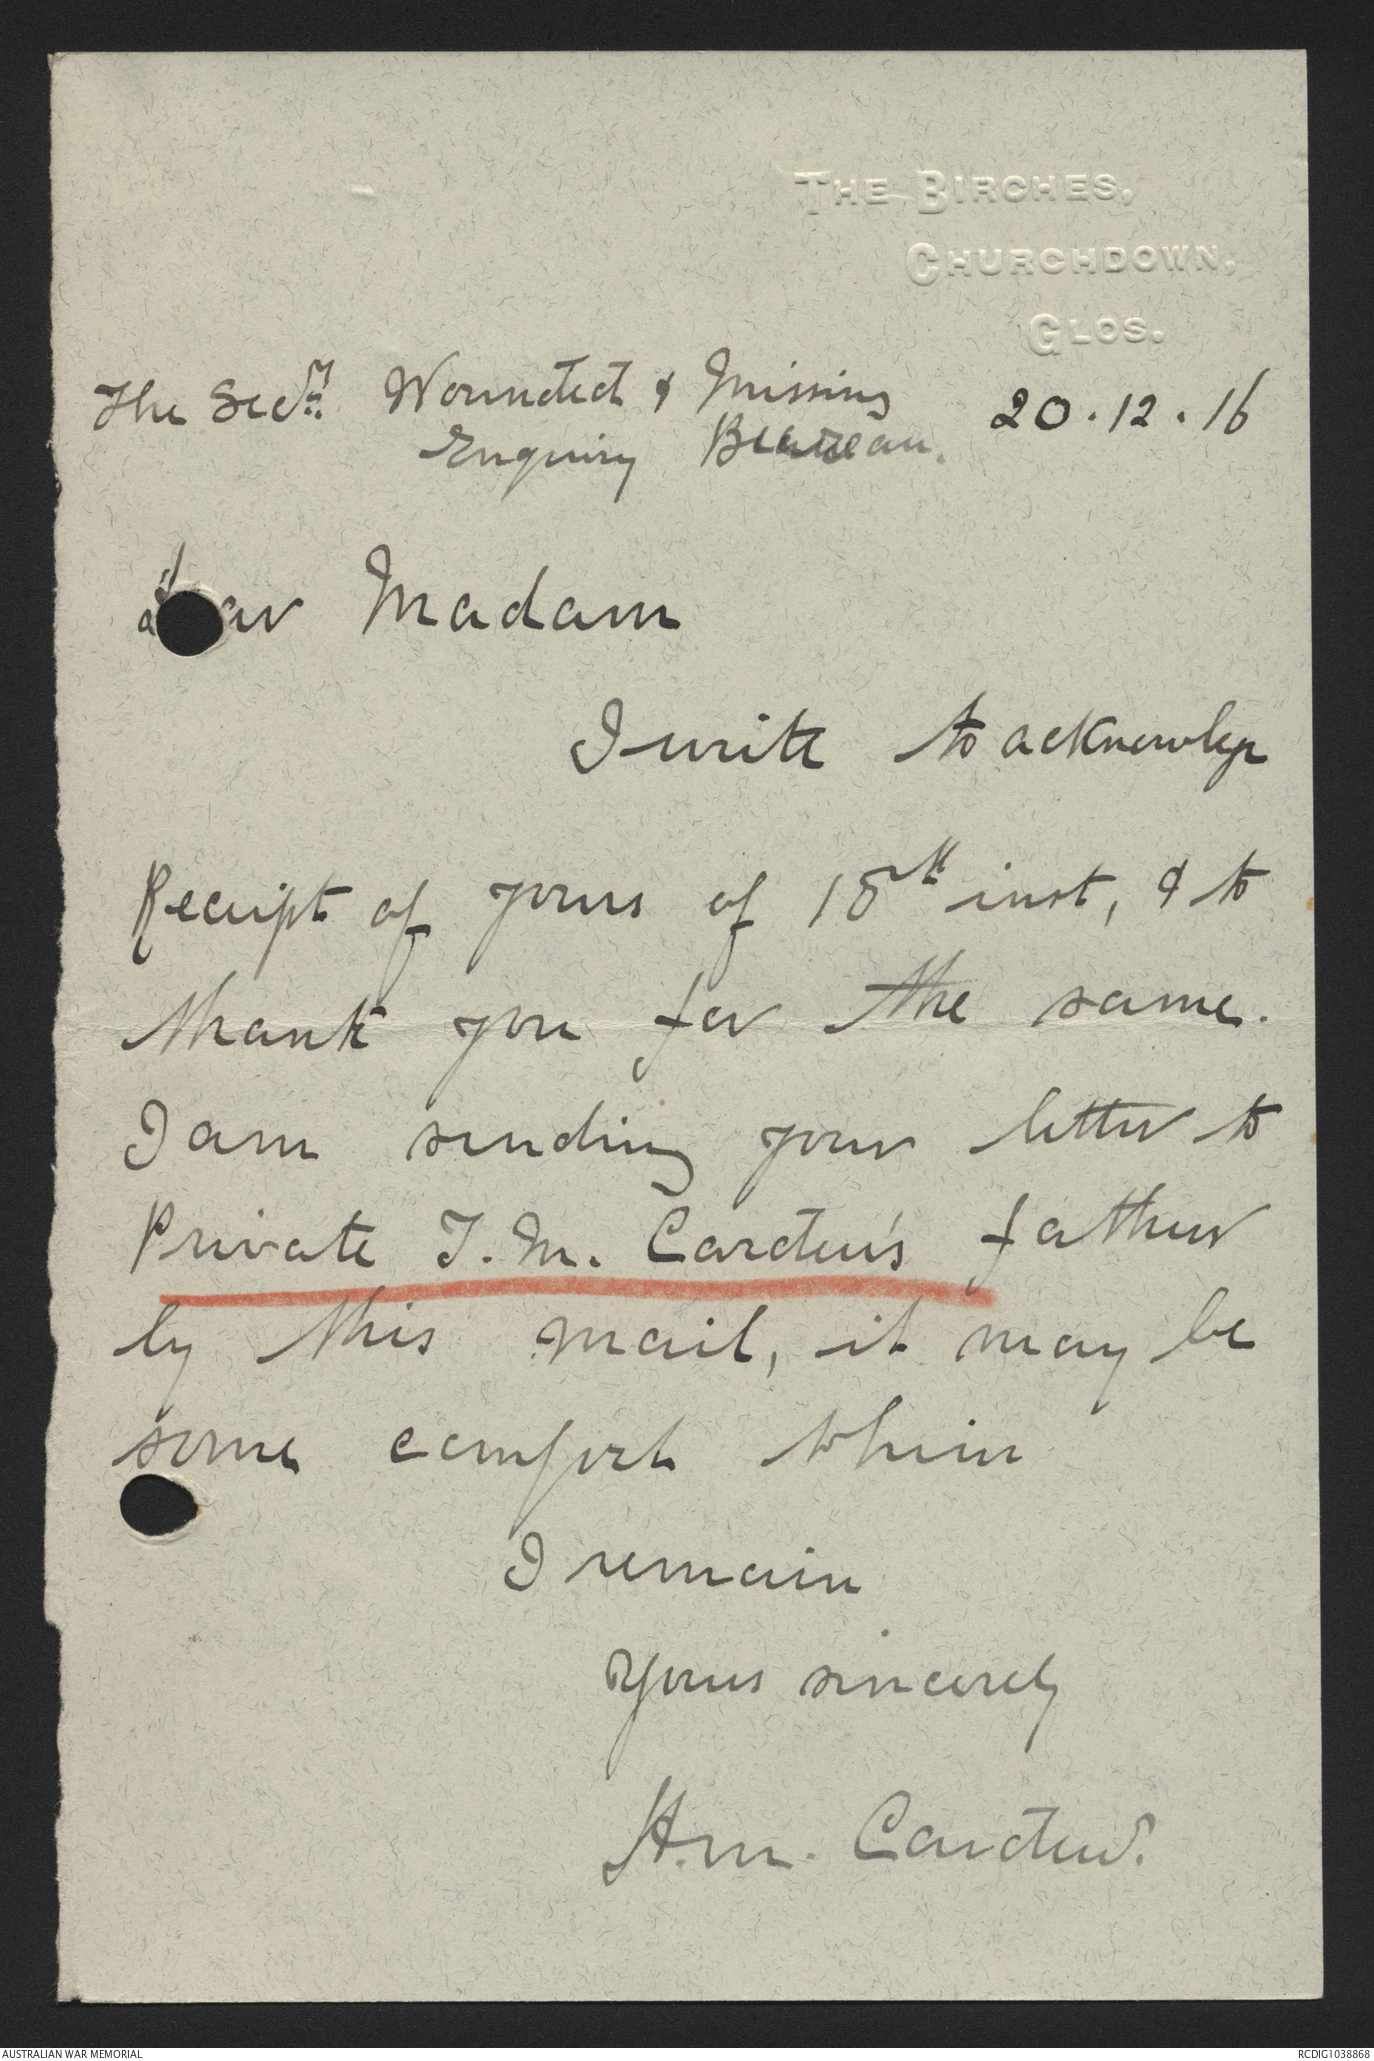 THE BIRCHES,
CHURCHDOWN,
GLOS.
The Secry Wounded & Missing
Enquiry Bureau.
20.12.16
dear Madam
I write to acknowlege
Receipt of yours of 18th inst, & to
thank you for the same.
I am sending your letter to
Private T. M. Cardew's father
by this mail, it may be
some comfort to him
I remain
Yours sincerely
H. M. Cardew.
AUSTRALIAN WAR MEMORIAL
RCDIG1038868